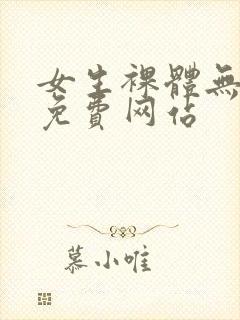 女生裸體無
免費网站
慕小唯